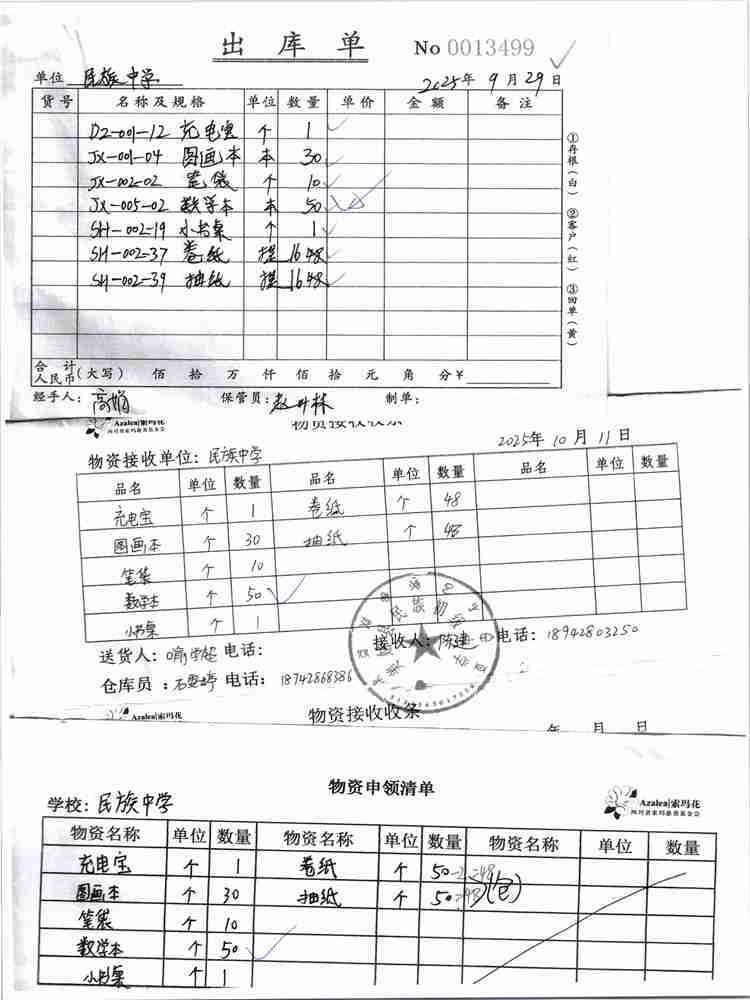 出 库 单 No 0013499
单位 民族中学 2025年 9 月 29 日
货号 名称及规格 单位 数量 单价 金额 备注
D2-001-12 充电宝 个 1
JX-001-04 图画本 本 30
JX-002-02 笔袋 个 10
JX-005-02 数学本 本 50
SH-002-19 小书桌 个 1
SH-002-37 卷纸 提 16 48
SH-002-39 抽纸 提 16 48
合计人民币(大写) 佰 拾 万 仟 佰 拾 元 角 分 ¥
①存根(白) ②客户(红) ③回单(黄)
经手人: 高娟 保管员: 赵升林 制单:
Azalea|索玛花
四川省索玛慈善基金会
物资接收收条
物资接收单位: 民族中学 2025年 10 月 11 日
品名 单位 数量 品名 单位 数量 品名 单位 数量
充电宝 个 1 卷纸 个 48
图画本 个 30 抽纸 个 48
笔袋 个 10
数学本 个 50
小书桌 个 1
送货人: 电话: 接收人: 陈建 电话: 18942803250
仓库员: 电话: 18742868386
Azalea|索玛花 物资接收收条
年 月 日
物资申领清单
学校: 民族中学 Azalea|索玛花
四川省索玛慈善基金会
物资名称 单位 数量 物资名称 单位 数量 物资名称 单位 数量
充电宝 个 1 卷纸 个 50-2=48
图画本 个 30 抽纸 个 50-2=48 (包)
笔袋 个 10
数学本 个 50
小书桌 个 1